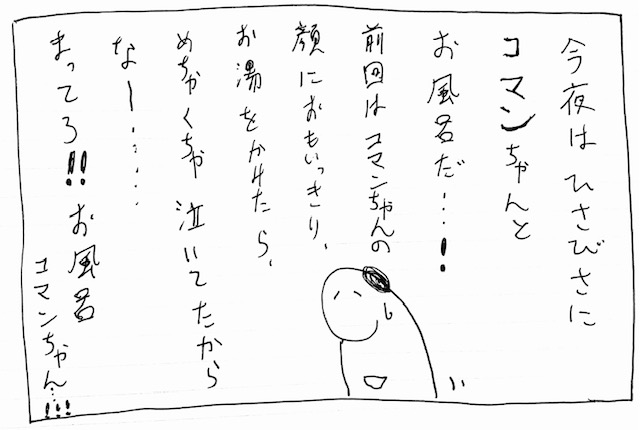 今夜はひさびさに
コマンちゃんと
お風呂だ…!
前回はコマンちゃんの
顔におもいっきり、
お湯をかけたら、
めちゃくちゃ泣いてたから
なー……
まってろ!!お風呂
コマンちゃん…!!!